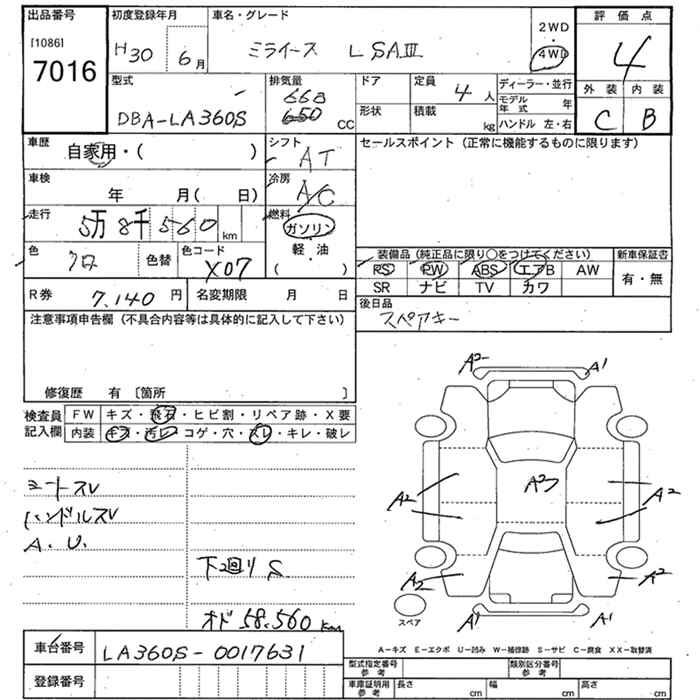 出品番号 初度登録年月 車名・グレード 2WD 評価点
[1086] H30 6月 ミライース L SAⅢ 4WD 4
7016
型式 排気量 ドア 定員 4人 ディーラー・並行 外装 内装
DBA-LA360S 668 650 CC 形状 積載 kg モデル年式 年 C B
ハンドル 左・右
車歴 自家用・( ) シフト AT セールスポイント (正常に機能するものに限ります)
車検 年 月( 日) 冷房 A/C
走行 5万8千560km 燃料 ガソリン
軽・油
( )
色 クロ 色替 色コード X07
装備品 (純正品に限り○をつけてください) 新車保証書
PS PW ABS エアB AW 有・無
SR ナビ TV カワ
R券 7,140円 名変期限 月 日 後日品
スペアキー
注意事項申告欄 (不具合内容等は具体的に記入して下さい)
修復歴 有 〔箇所 〕
検査員記入欄 FW キズ・飛石・ヒビ割・リペア跡・X要
内装 キズ・汚レ・コゲ・穴・スレ・キレ・破レ
シートスレ
ハンドルスレ
A.U.
下廻りS
オド 58,560km
A2 A1
A2
A2 A2
A2 A2
A1 A1
スペア
A-キズ E-エクボ U-凹み W-補修跡 S-サビ C-腐食 XX-取替済
車台番号 LA360S-0017631
登録番号
型式指定番号 参考 類別区分番号 参考
車庫証明用 参考 長さ cm 幅 cm 高さ cm